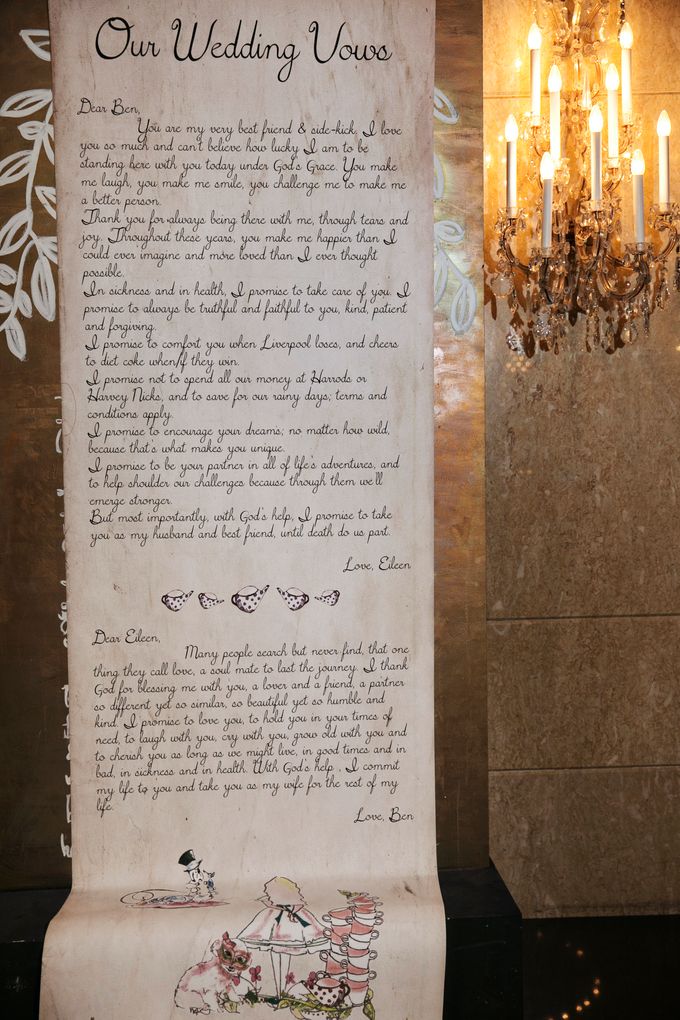 Our Wedding Vows
Dear Ben,
You are my very best friend & side-kick. I love
you so much and can't believe how lucky I am to be
standing here with you today under God's Grace. You make
me laugh, you make me smile, you challenge me to make me
a better person.
Thank you for always being there with me, through tears and
joy. Throughout these years, you make me happier than I
could ever imagine and more loved than I ever thought
possible.
In sickness and in health, I promise to take care of you. I
promise to always be truthful and faithful to you, kind, patient
and forgiving.
I promise to comfort you when Liverpool loses, and cheers
to diet coke when/if they win.
I promise not to spend all our money at Harrods or
Harvey Nicks, and to save for our rainy days; terms and
conditions apply.
I promise to encourage your dreams; no matter how wild,
because that's what makes you unique.
I promise to be your partner in all of life's adventures, and
to help shoulder our challenges because through them we'll
emerge stronger.
But most importantly, with God's help, I promise to take
you as my husband and best friend, until death do us part.
Love, Eileen
Dear Eileen,
Many people search but never find, that one
thing they call love, a soul mate to last the journey. I thank
God for blessing me with you, a lover and a friend, a partner
so different yet so similar, so beautiful yet so humble and
kind. I promise to love you, to hold you in your times of
need, to laugh with you, cry with you, grow old with you and
to cherish you as long as we might live, in good times and in
bad, in sickness and in health. With God's help , I commit
my life to you and take you as my wife for the rest of my
life.
Love, Ben